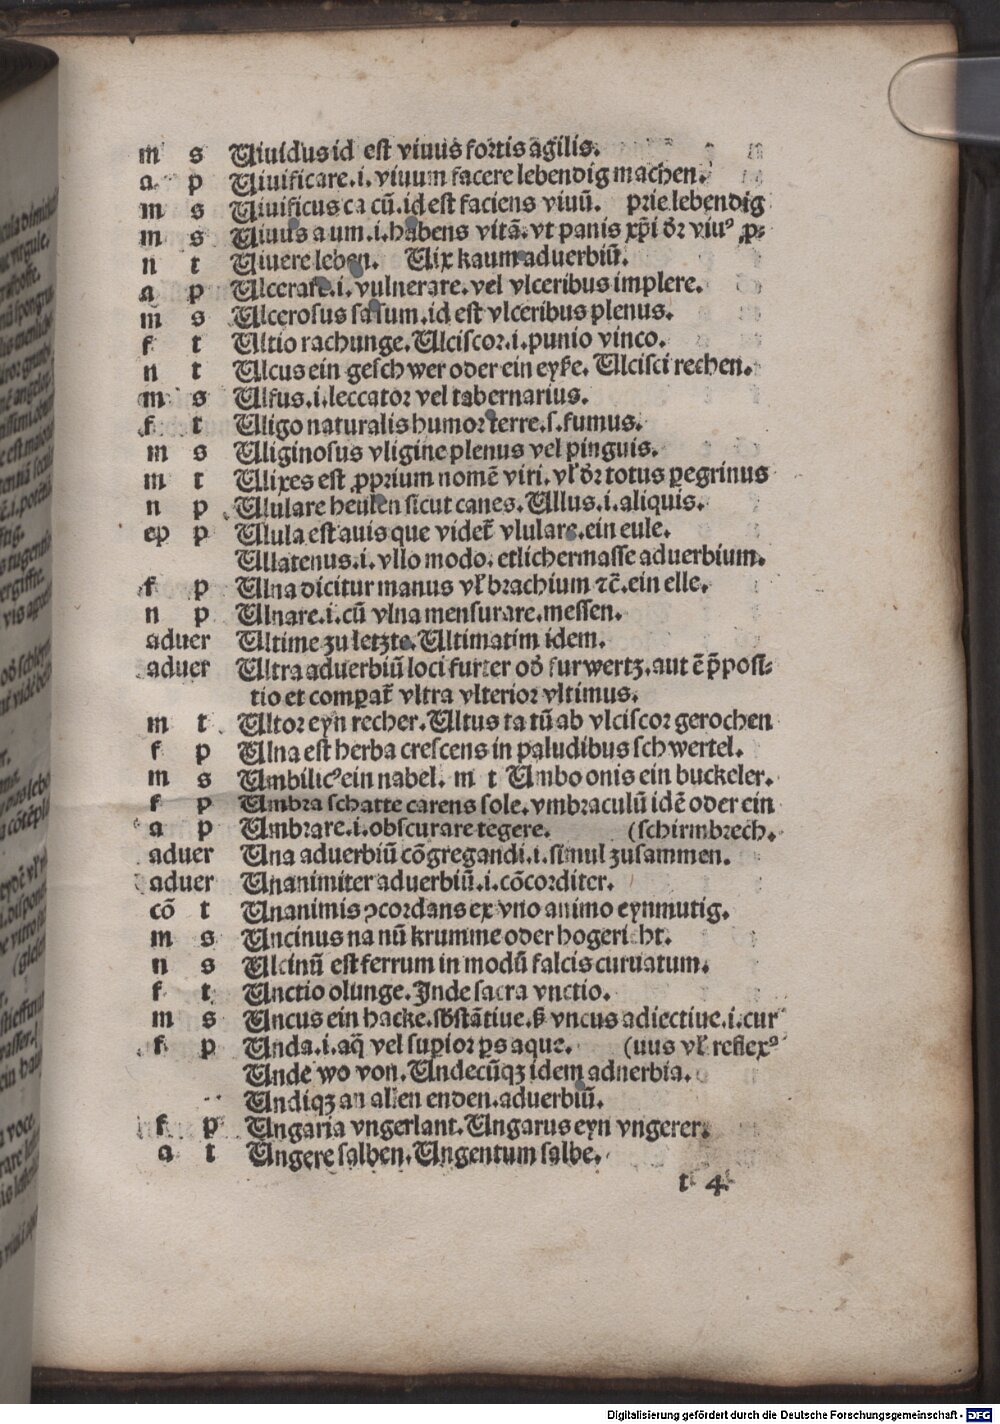 m s Uiuidus id est viuus fortis agilis.
a p Uiuificare.i. viuum facere lebendig machen.
m s Uiuificus ca cū.id est faciens viuū. prie lebendig
m s Uiuus a um.i.habens vitā.vt panis xp̄i dr̄ viuꝰ ꝓ⸗
n t Uiuere leben. Uix kaum aduerbiū.
a p Ulcerare.i. vulnerare. vel vlceribus implere.
m s Ulcerosus sa sum.id est vlceribus plenus.
f t Ultio rachunge. Ulciscor.i.punio vinco.
n t Ulcus ein geschwer oder ein eyße. Ulcisci rechen.
m s Ulfus.i.leccator vel tabernarius.
f t Uligo naturalis humor terre.s.fumus.
m s Uliginosus vligine plenus vel pinguis.
m t Ulixes est ꝓprium nomē viri. vl̄ dr̄ totus ꝑegrinus
n p Ululare heulen sicut canes. Ullus.i.aliquis.
ep p Ulula est auis que videt̄ vlulare.ein eule.
Ullatenus.i.vllo modo. etlichermasse aduerbium.
f p Ulna dicitur manus vl̄ brachium ⁊c̄.ein elle.
n p Ulnare.i.cū vlna mensurare.messen.
aduer Ultime zu letzte. Ultimatim idem.
aduer Ultra aduerbiū loci furter od̄ furwertz.aut ē p̄posi⸗
tio et comꝑat̄ vltra vlterior vltimus.
m t Ultor eyn recher. Ultus ta tū ab vlciscor gerochen
f p Ulna est herba crescens in paludibus schwertel.
m s Umbilicꝰ ein nabel. m t Umbo onis ein buckeler.
f p Umbra schatte carens sole. vmbraculū idē oder ein
a p Umbrare.i.obscurare tegere. (schirmbrech.
aduer Una aduerbiū cōgregandi.i.simul zusammen.
aduer Unanimiter aduerbiū.i.cōcorditer.
cō t Unanimis ꝯcordans ex vno animo eynmutig.
m s Uncinus na nū krumme oder hogericht.
n s Ulcinū est ferrum in modū falcis curuatum.
f t Unctio olunge. Inde sacra vnctio.
m s Uncus ein hacke.sb̄stātiue. ß vncus adiectiue.i.cur
f p Unda.i.aq̄ vel suꝑior ꝑs aque. (uus vl̄ reflexꝰ
Unde wo von. Undecūqꝫ idem aduerbia.
Undiqꝫ an allen enden.aduerbiū.
f p Ungaria vngerlant. Ungarus eyn vngerer.
a t Ungere salben. Ungentum salbe.
t 4
Digitalisierung gefördert durch die Deutsche Forschungsgemeinschaft - DFG